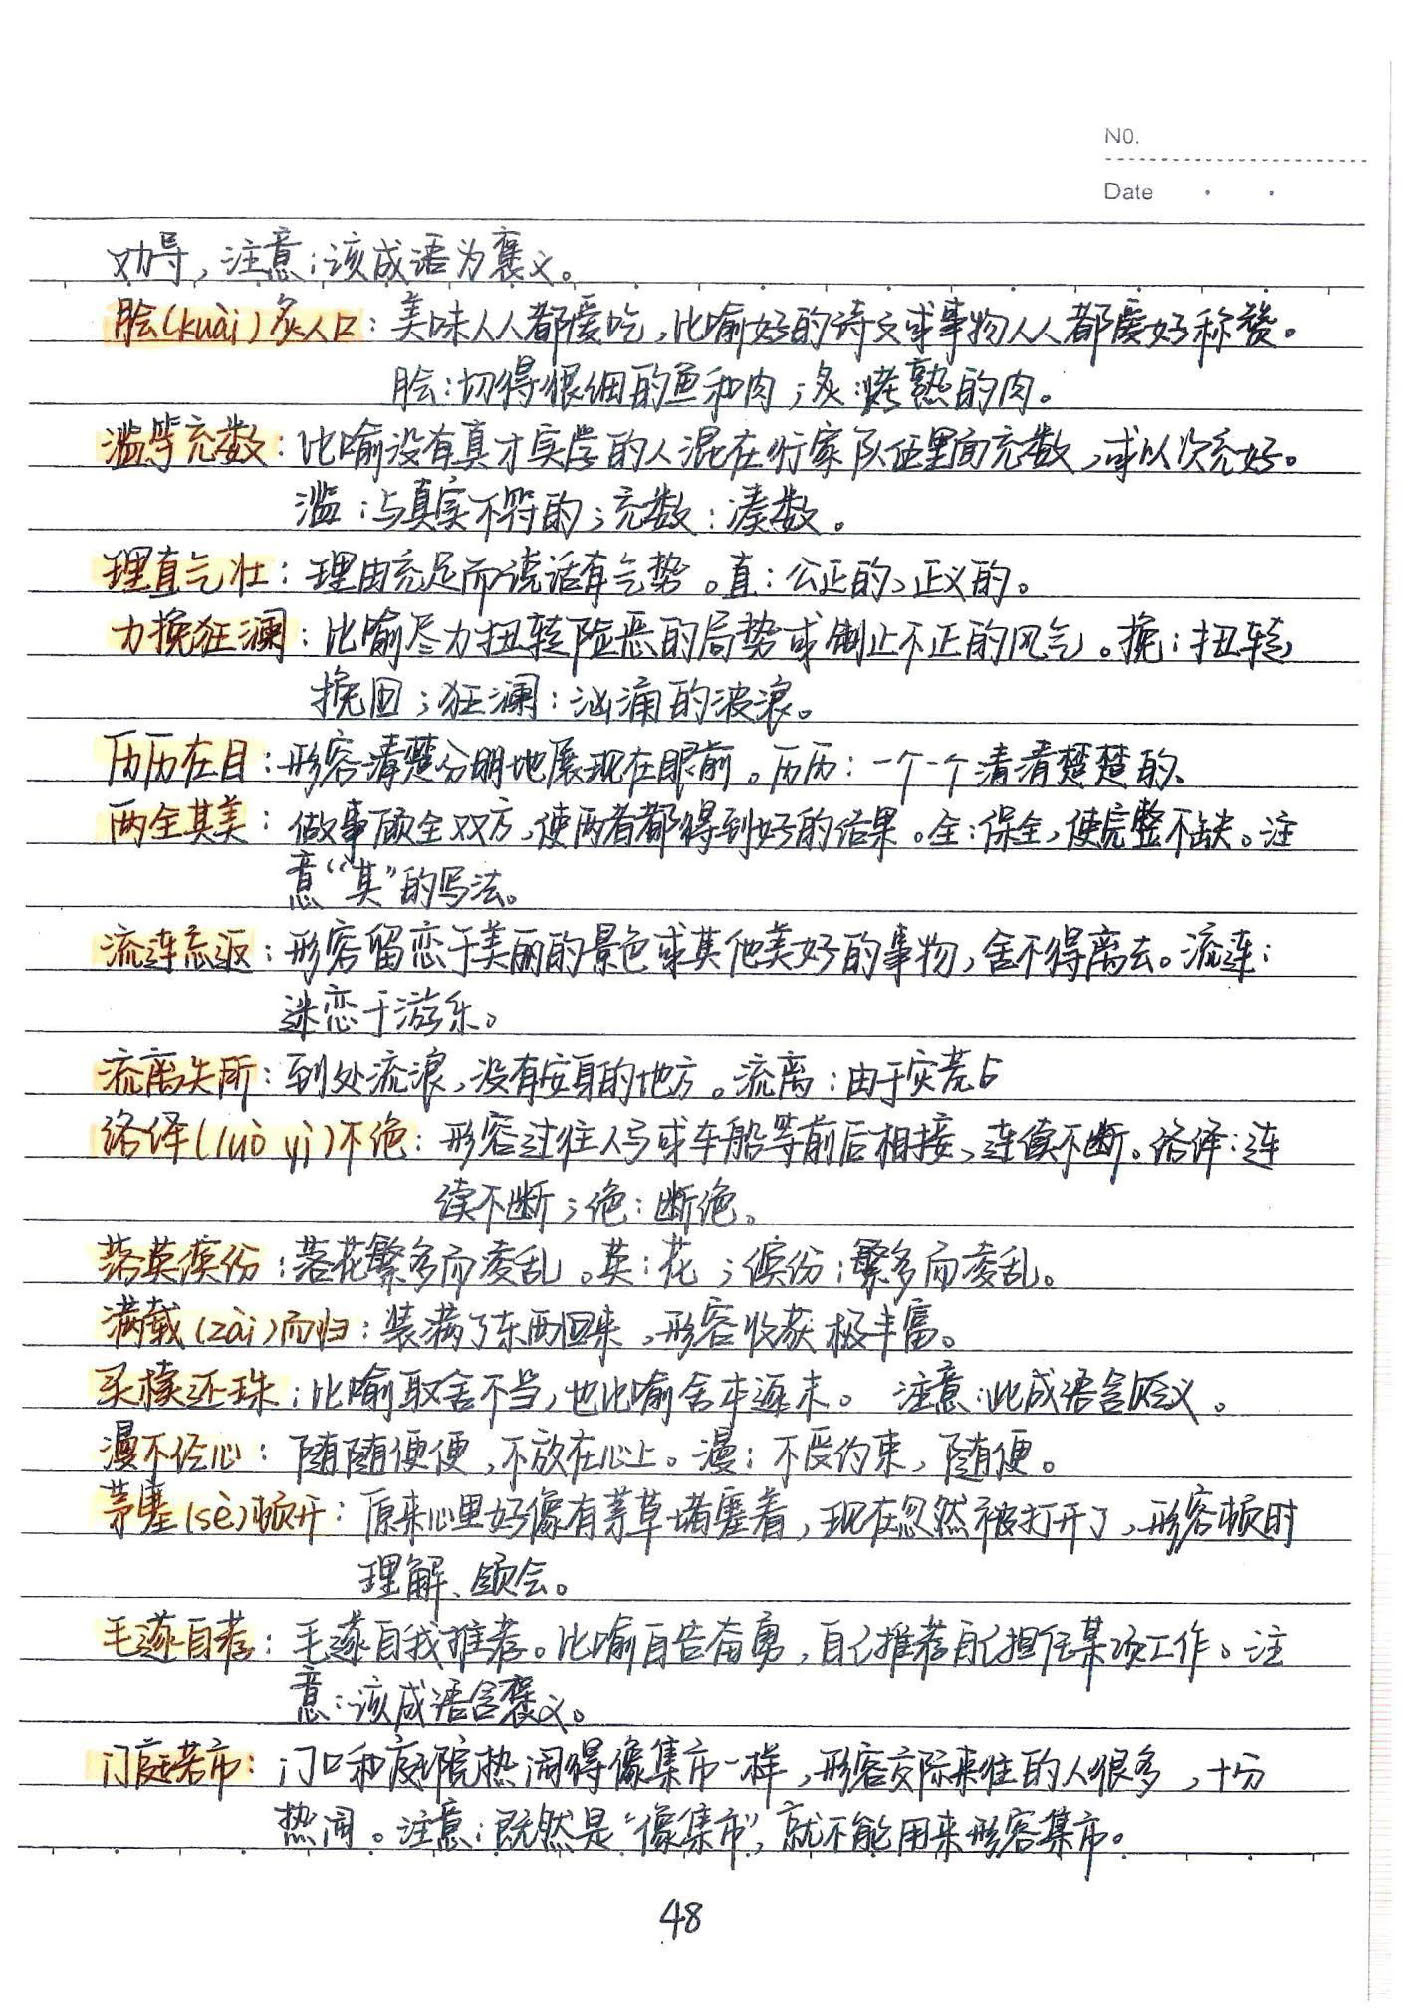 NO.
Date
劝导，注意：该成语为褒义。
脍(kuài)炙人口：美味人人都爱吃，比喻好的诗文或事物人人都爱好称赞。
脍：切得很细的鱼和肉；炙：烤熟的肉。
滥竽充数：比喻没有真才实学的人混在行家队伍里面充数，或以次充好。
滥：与真实不符的；充数：凑数。
理直气壮：理由充足而说话有气势。直：公正的、正义的。
力挽狂澜：比喻尽力扭转险恶的局势或制止不正的风气。挽：扭转
挽回；狂澜：汹涌的波浪。
历历在目：形容清楚分明地展现在眼前。历历：一个一个清清楚楚的、
两全其美：做事顾全双方，使两者都得到好的结果。全：保全，使完整不缺。注
意“其”的写法。
流连忘返：形容留恋于美丽的景色或其他美好的事物，舍不得离去。流连：
迷恋于游乐。
流离失所：到处流浪，没有安身的地方。流离：由于灾荒占
络绎(luò yì)不绝：形容过往人马或车船等前后相接，连续不断。络绎：连
续不断；绝：断绝。
落英缤纷：落花繁多而凌乱。英：花；缤纷：繁多而凌乱。
满载(zài)而归：装满了东西回来，形容收获极丰富。
买椟还珠：比喻取舍不当，也比喻舍本逐末。 注意：此成语含贬义。
漫不经心：随随便便，不放在心上。漫：不受约束，随便。
茅塞(sè)顿开：原来心里好像有茅草堵塞着，现在忽然被打开了，形容顿时
理解、领会。
毛遂自荐：毛遂自我推荐。比喻自告奋勇，自己推荐自己担任某项工作。注
意：该成语含褒义。
门庭若市：门口和庭院热闹得像集市一样，形容交际来往的人很多，十分
热闹。注意：既然是“像集市”，就不能用来形容集市。
48